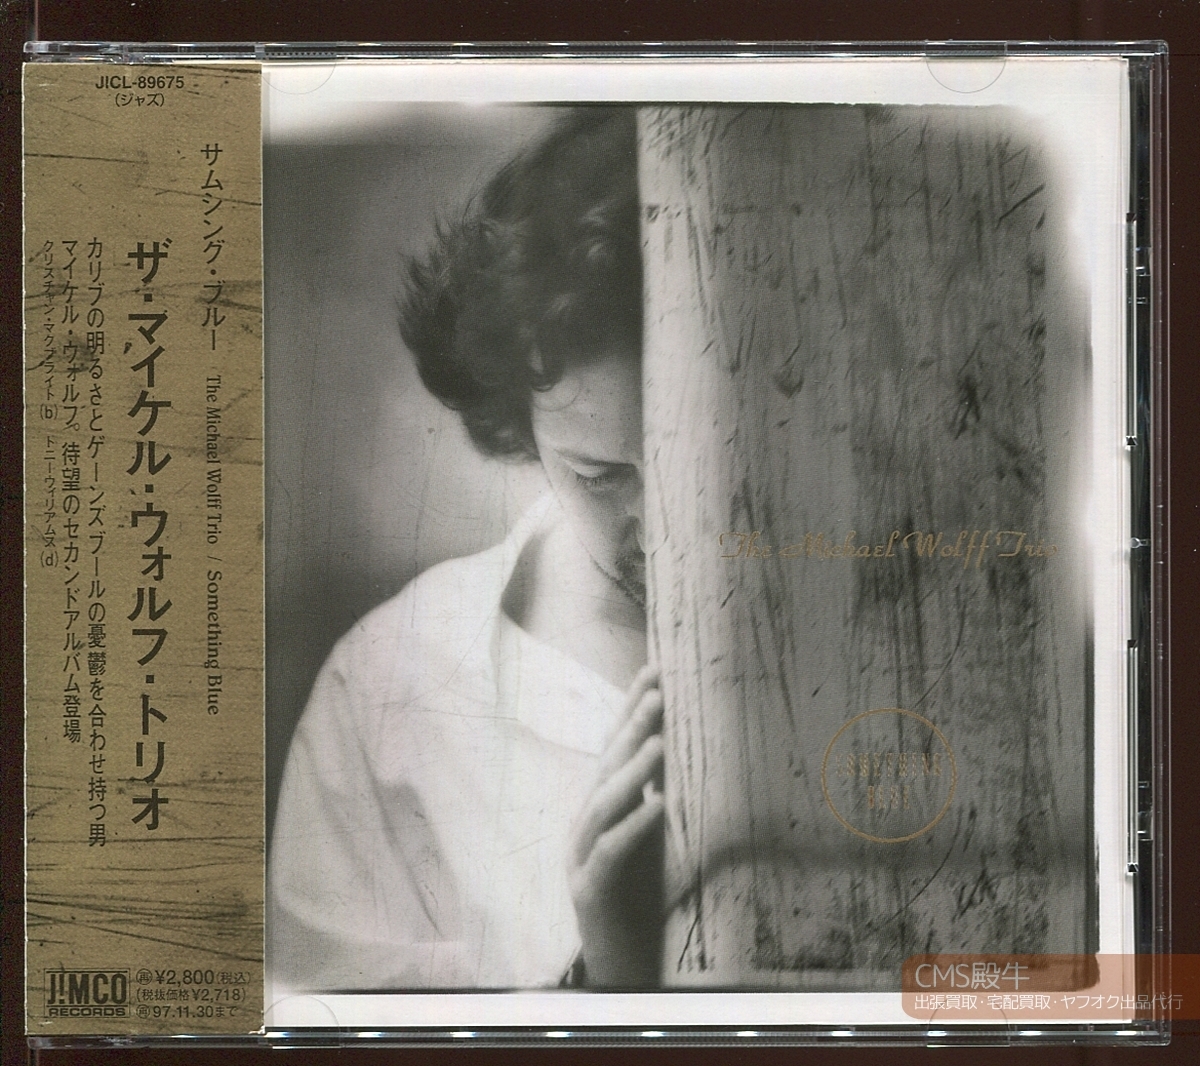 JICL-89675
(ジャズ)
サムシング・ブルー The Michael Wolff Trio / Something Blue
ザ・マイケル・ウォルフ・トリオ
カリブの明るさとゲーンズブールの憂鬱を合わせ持つ男
マイケル・ウォルフ。待望のセカンドアルバム登場
クリスチャン・マクブライト(b) トニーウィリアムス(d)
J!MCO
RECORDS
再¥2,800(税込)
(税抜価格¥2,718)
再97.11.30まで
The Michael Wolff Trio
SOMETHING
BLUE
CMS殿牛
出張買取・宅配買取・ヤフオク出品代行